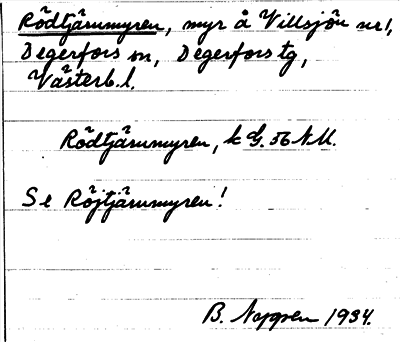 Rödtjärnmyren, myr å Villsjön nr 1,
Degerfors sn, Degerfors tg,
Västerb.l.
Rödtjärnmyren, k G. 56 N.M.
Se Röjtjärnmyren!
B. Noggren 1934.